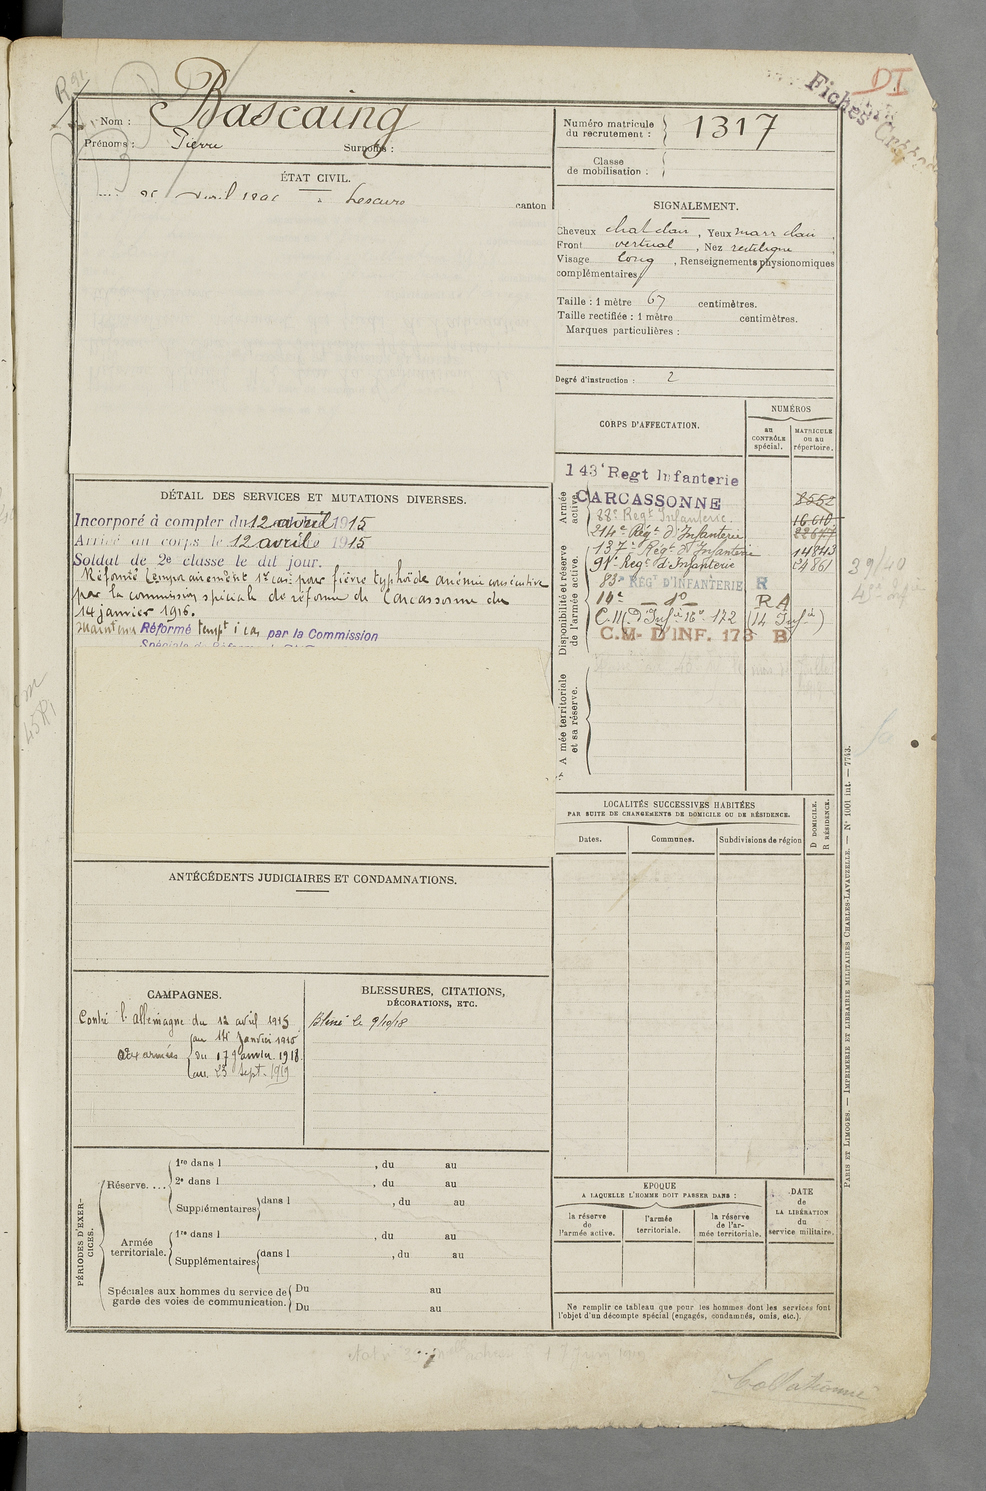 DI
Fiches
Nom : Bascaing
Prénoms : Pierre Surnoms :
Numéro matricule du recrutement : 1317
Classe de mobilisation :
ÉTAT CIVIL.
avril à Lescure canton
SIGNALEMENT.
Cheveux chat clair, Yeux marr clair,
Front vertical, Nez rectiligne
Visage long, Renseignements physionomiques
complémentaires
Taille : 1 mètre 67 centimètres.
Taille rectifiée : 1 mètre centimètres.
Marques particulières :
Degré d'instruction : 2
CORPS D'AFFECTATION.
NUMÉROS
au CONTRÔLE spécial.
MATRICULE ou au répertoire.
Armée active.
143e Regt Infanterie
CARCASSONNE 8552
88e Regt Infanterie 16610
214e Régt d'Infanterie 22677
Disponibilité et réserve de l'armée active.
137e Régt d'Infanterie 14843
9e Regt d'Infanterie 24861
83e REGt D'INFANTERIE R
16e — 1º — RA
C.M. d'Infie 16e 172 (14 Infie)
C.M. D'INF. 173 B
Armée territoriale et sa réserve.
DÉTAIL DES SERVICES ET MUTATIONS DIVERSES.
Incorporé à compter du 12 avril 1915
Arrivé au corps le 12 avril 1915
Soldat de 2e classe le dit jour.
Réformé temporairement 1e cat. pour fièvre typhoïde anémie consécutive
par la commission spéciale de réforme de Carcassonne du
14 janvier 1916.
Maintenu Réformé tempt 1 cat par la Commission
LOCALITÉS SUCCESSIVES HABITÉES
PAR SUITE DE CHANGEMENTS DE DOMICILE OU DE RÉSIDENCE.
Dates. Communes. Subdivisions de région
D DOMICILE.
R RÉSIDENCE.
ANTÉCÉDENTS JUDICIAIRES ET CONDAMNATIONS.
CAMPAGNES.
Contre l'allemagne du 12 avril 1915
au 14 Janvier 1916
aux armées du 17 Janvier 1918
au 23 Sept. 1919
BLESSURES, CITATIONS,
DÉCORATIONS, ETC.
Blessé le 9/10/18
PÉRIODES D'EXERCICES.
Réserve....
1re dans l , du au
2e dans l , du au
Supplémentaires dans l , du au
Armée territoriale.
1re dans l , du au
Supplémentaires dans l , du au
Spéciales aux hommes du service de garde des voies de communication.
Du au
Du au
EPOQUE
A LAQUELLE L'HOMME DOIT PASSER DANS :
la réserve de l'armée active.
l'armée territoriale.
la réserve de l'armée territoriale.
DATE de LA LIBÉRATION du service militaire.
Ne remplir ce tableau que pour les hommes dont les services font
l'objet d'un décompte spécial (engagés, condamnés, omis, etc.).
PARIS ET LIMOGES. — IMPRIMERIE ET LIBRAIRIE MILITAIRES CHARLES-LAVAUZELLE. — Nº 1001 int. — 7743.
39/40
Collationné